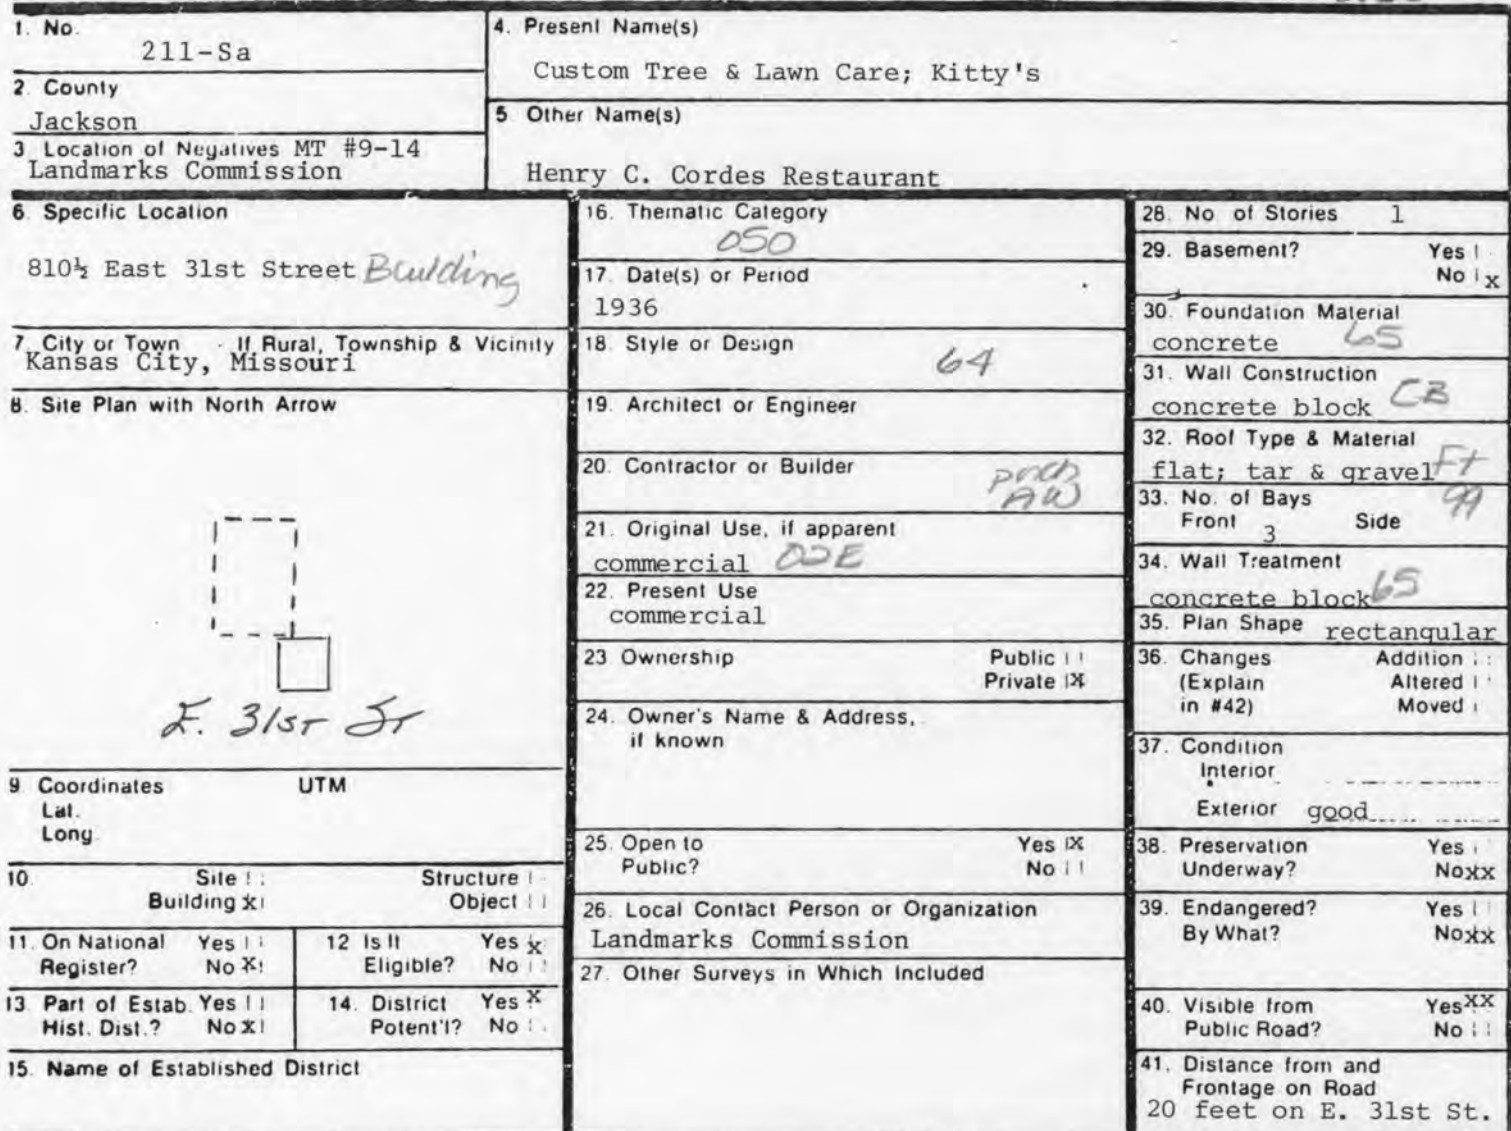 1. No.
211-Sa
2. County
Jackson
3. Location of Negatives MT #9-14
Landmarks Commission
4. Present Name(s)
Custom Tree & Lawn Care; Kitty's
5 Other Name(s)
Henry C. Cordes Restaurant
6. Specific Location
810½ East 31st Street Building
7. City or Town If Rural, Township & Vicinity
Kansas City, Missouri
8. Site Plan with North Arrow
E. 31st St
9. Coordinates UTM
Lat.
Long.
10. Site Structure
Building x Object
11. On National Yes
Register? No X
12 Is It Yes x
Eligible? No
13. Part of Estab. Yes
Hist. Dist.? No x
14. District Yes X
Potent'l? No
15. Name of Established District
16. Thematic Category
050
17. Date(s) or Period
1936
18. Style or Design
64
19. Architect or Engineer
20. Contractor or Builder
AW
21. Original Use, if apparent
commercial 02E
22. Present Use
commercial
23 Ownership Public
Private X
24. Owner's Name & Address,
if known
25. Open to Yes X
Public? No
26. Local Contact Person or Organization
Landmarks Commission
27. Other Surveys in Which Included
28. No. of Stories 1
29. Basement? Yes
No x
30. Foundation Material
concrete 65
31. Wall Construction
concrete block CB
32. Roof Type & Material
flat; tar & gravel Ft
99
33. No. of Bays
Front 3 Side
34. Wall Treatment
concrete block 65
35. Plan Shape rectangular
36. Changes Addition
(Explain Altered
in #42) Moved
37. Condition
Interior
Exterior good
38. Preservation Yes
Underway? No xx
39. Endangered? Yes
By What? No xx
40. Visible from Yes XX
Public Road? No
41. Distance from and
Frontage on Road
20 feet on E. 31st St.